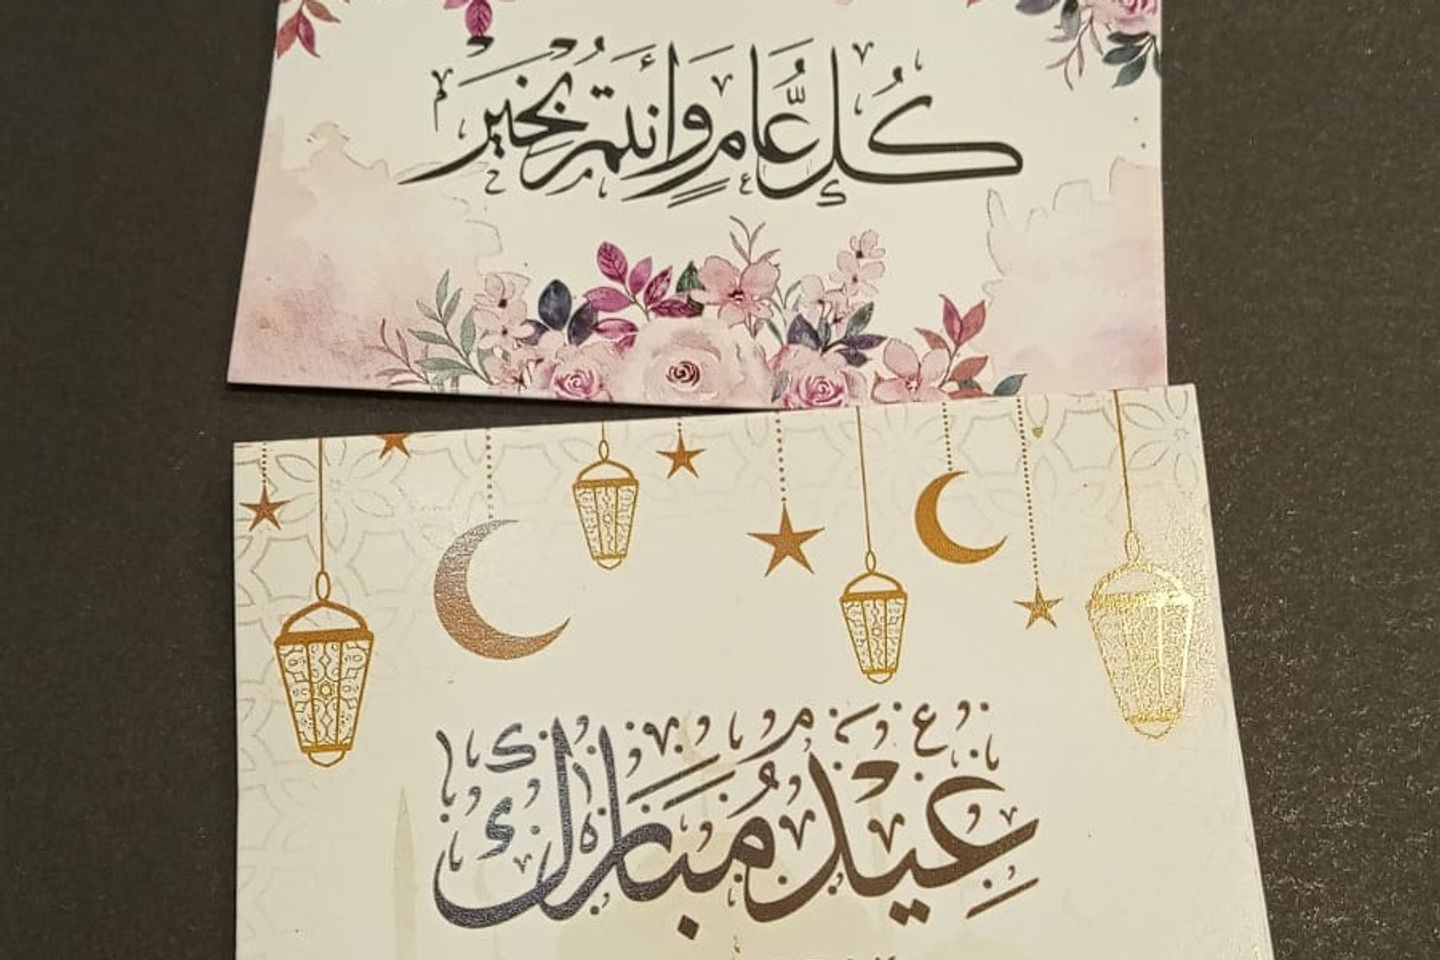 كُل عَّامٍ وَأنتم بخيرْ
عِيْد مُبَارَك